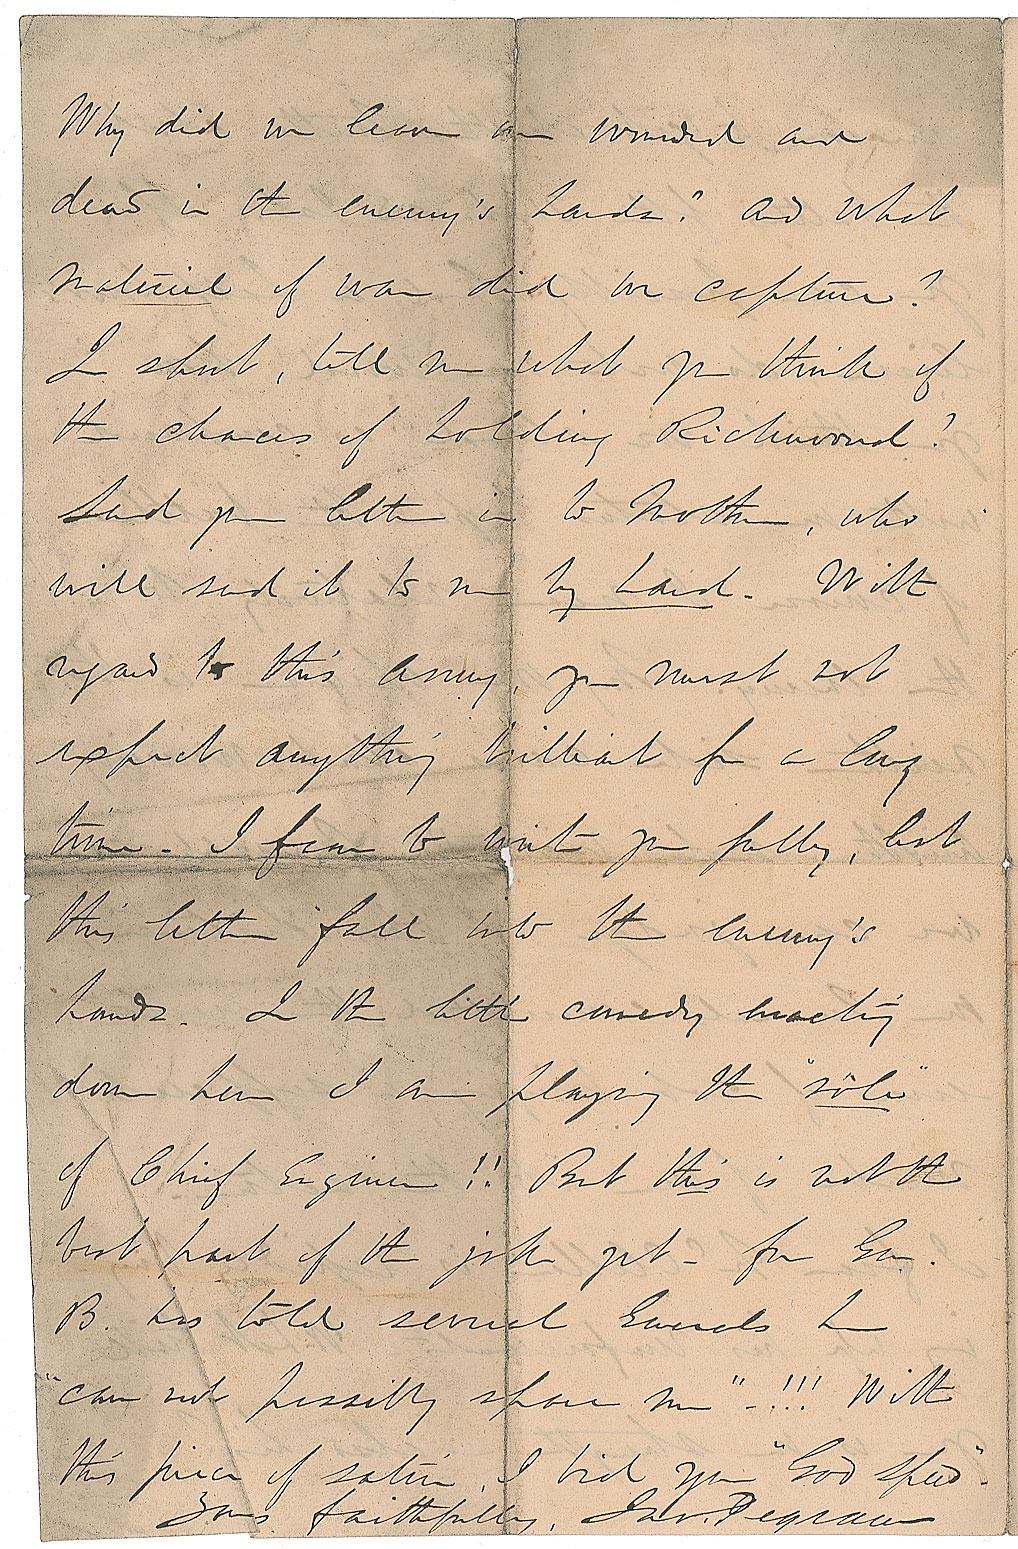 Why did we leave our wounded and
dead in the enemy's hands? and what
materiel of war did we capture?
In short, tell me what you think of
the chances of holding Richmond?
Send your letter in to Mother, who
will send it to me by hand. With
regard to this army, you must not
expect anything brilliant for a long
time. I fear to write you fully, lest
this letter fall into the enemy's
hands. In the little comedy enacting
down here I am playing the "rôle"
of Chief Engineer!! But this is not the
best part of the joke yet - for Gen.
B. has told several Generals he
"can not possibly spare me" - !!! With
this piece of satire, I bid you "God speed".
Yours faithfully, Jno. Pegram